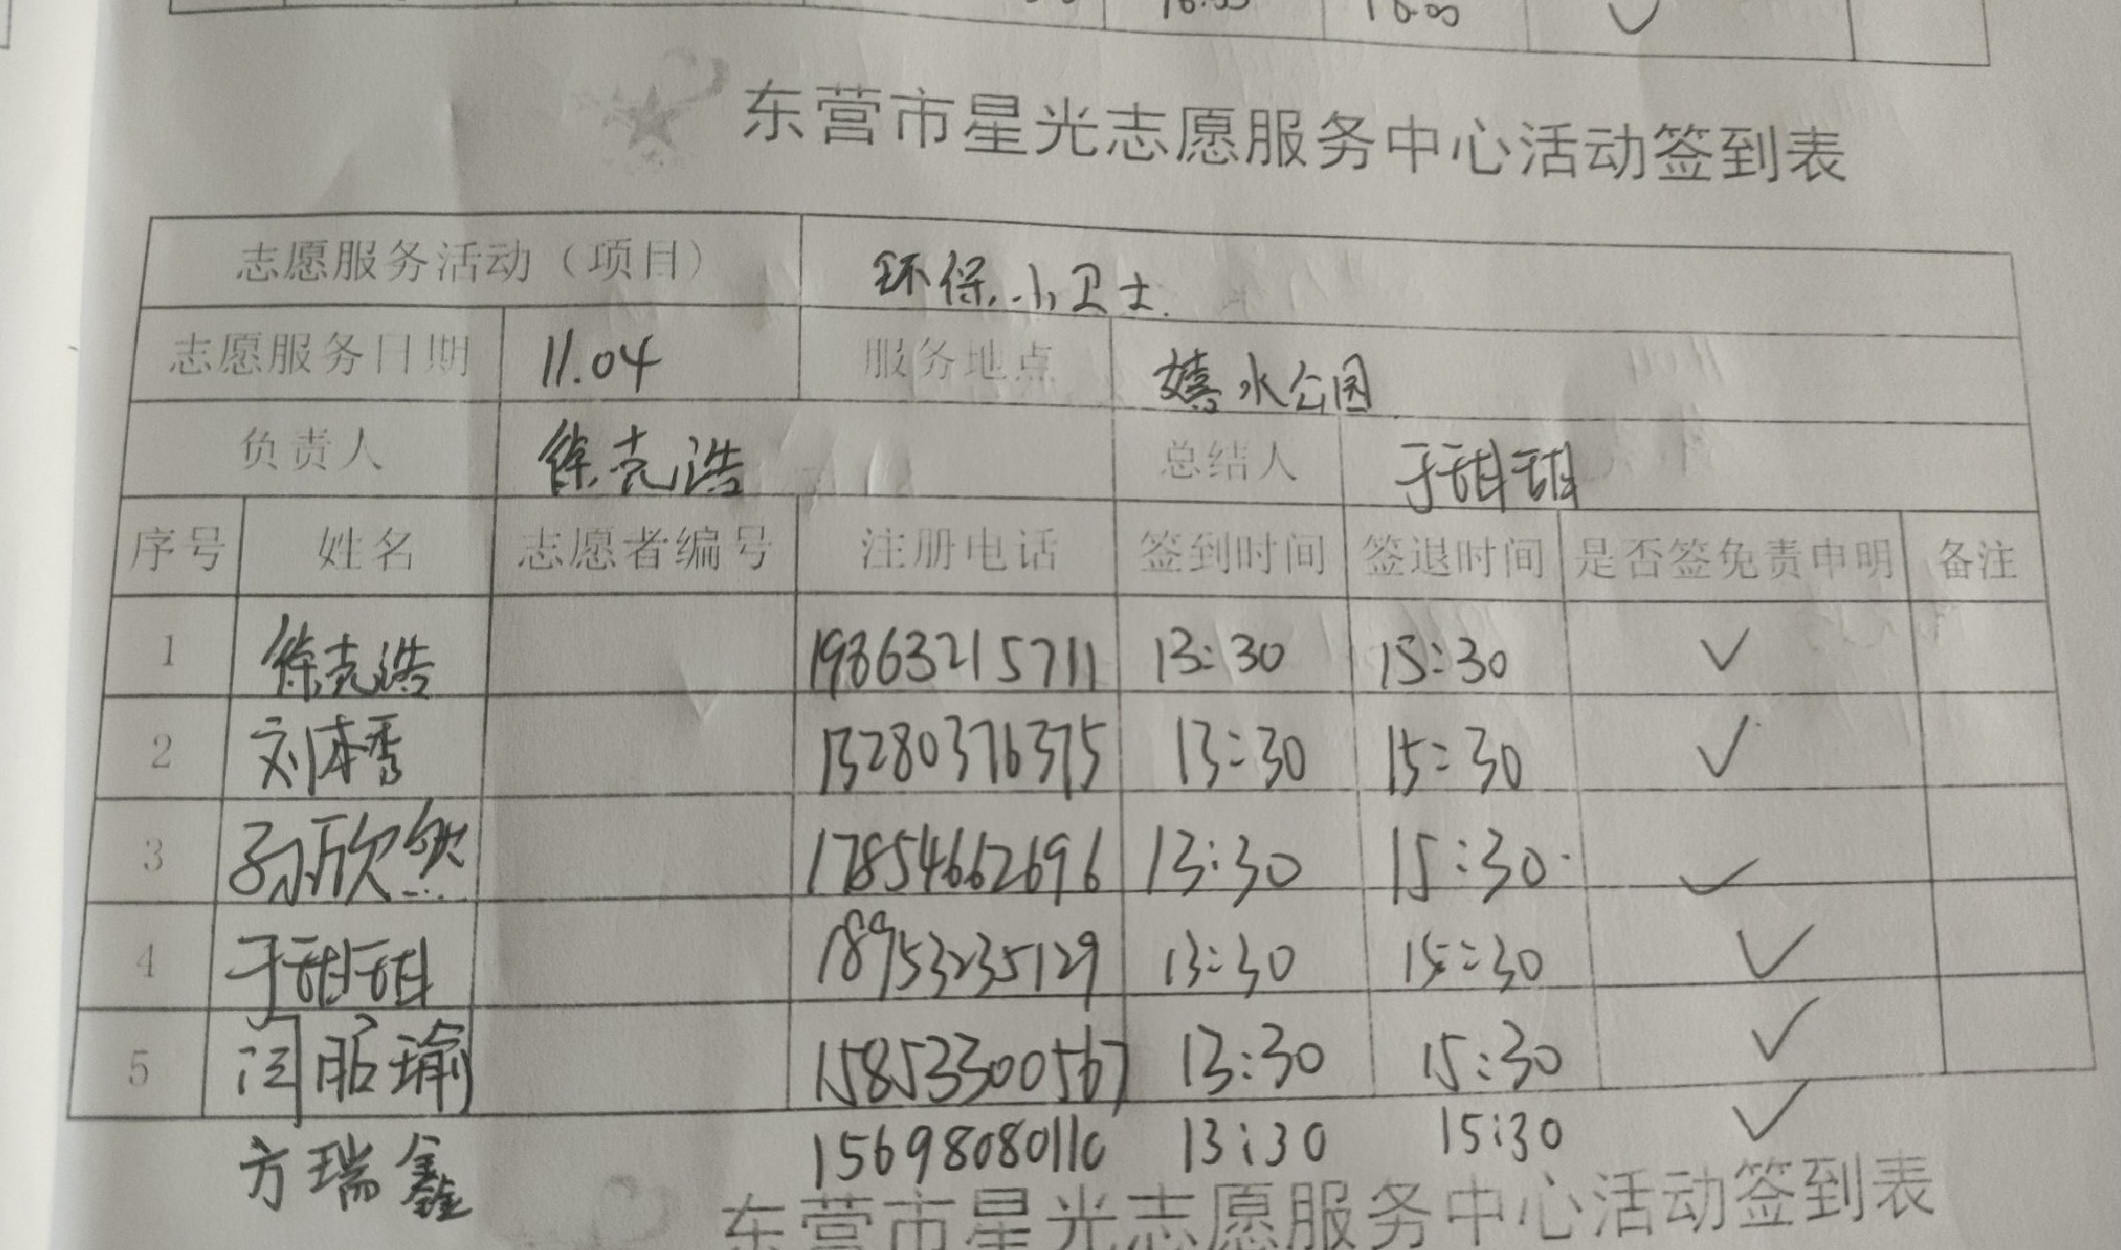 16:00
东营市星光志愿服务中心活动签到表
志愿服务活动（项目） 环保小卫士
志愿服务日期 11.04 服务地点 嬉水公园
负责人 徐克浩 总结人 于甜甜
序号 姓名 志愿者编号 注册电话 签到时间 签退时间 是否签免责申明 备注
1 徐克浩 19863215711 13:30 15:30 ✓
2 刘本香 13280376375 13:30 15:30 ✓
3 孙欣然 17854662696 13:30 15:30 ✓
4 于甜甜 18953235129 13:30 15:30 ✓
5 闫昭瑜 15853300567 13:30 15:30 ✓
方瑞鑫 15698080110 13:30 15:30 ✓
东营市星光志愿服务中心活动签到表